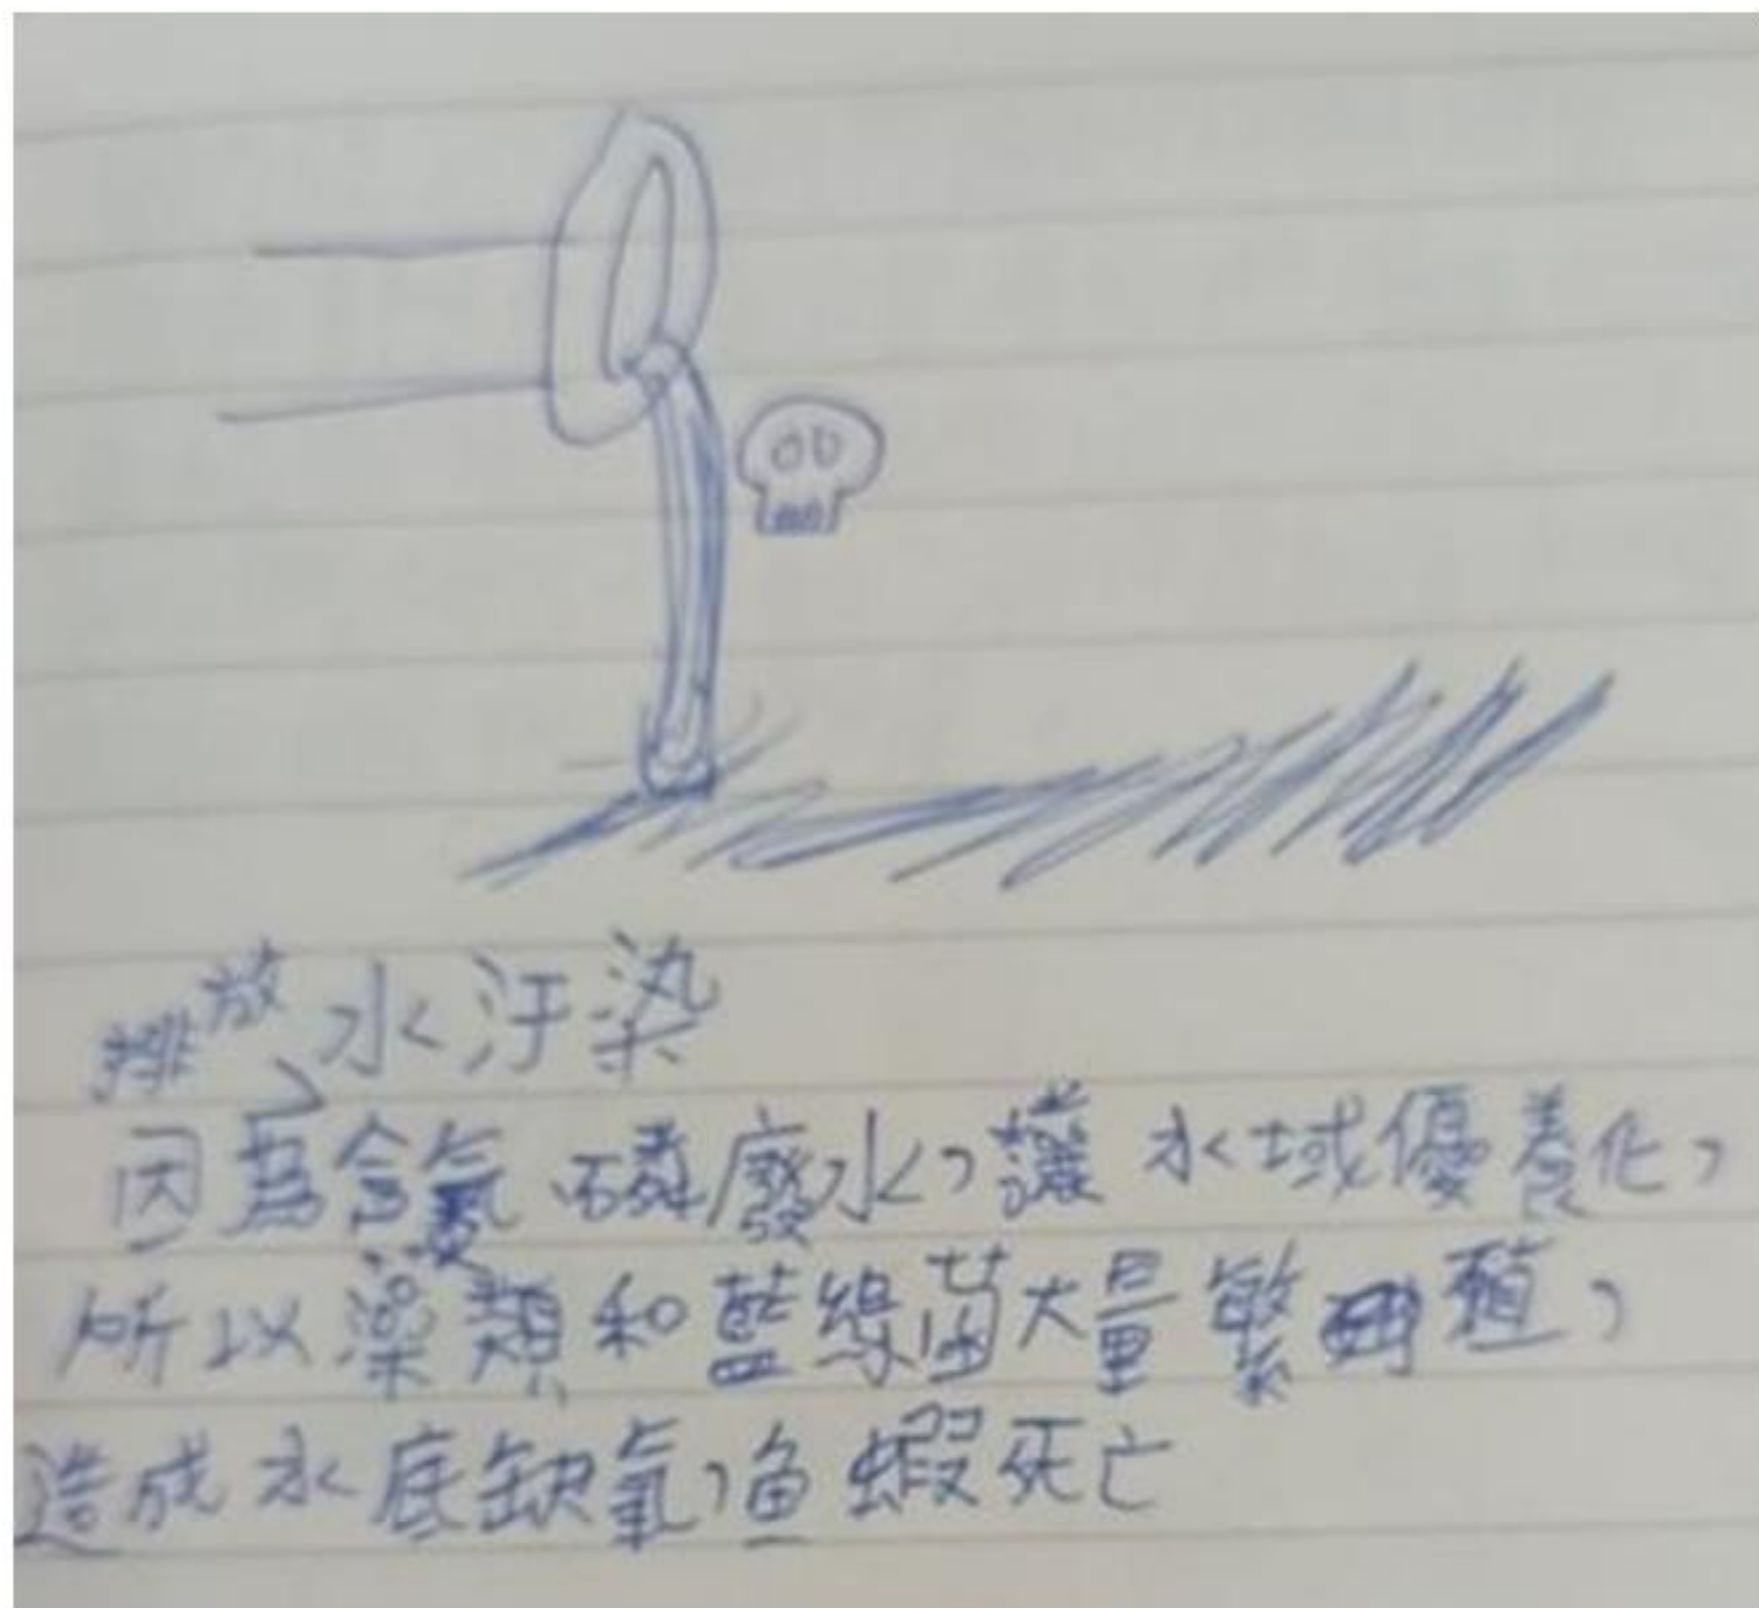 排放水汙染
因為含氮磷廢水,讓水域優養化,
所以藻類和藍綠菌大量繁殖,
造成水底缺氧,魚蝦死亡